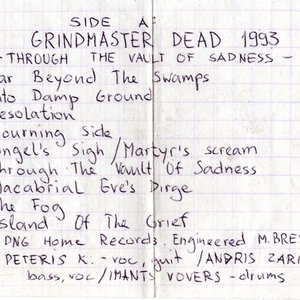 SIDE A:
GRINDMASTER DEAD 1993
- THROUGH THE VAULT OF SADNESS -
ar Beyond The Swamps
nto Damp Ground
esolation
ourning Side
ngel's Sigh / Martyr's scream
hrough The Vault Of Sadness
acabrial Eve's Dirge
he Fog
sland Of The Grief
PNG Home Records. Engineered M.BRE
PETERIS K. - voc, guit / ANDRIS ZARI
bass, voc / IMANTS VOVERS - drums